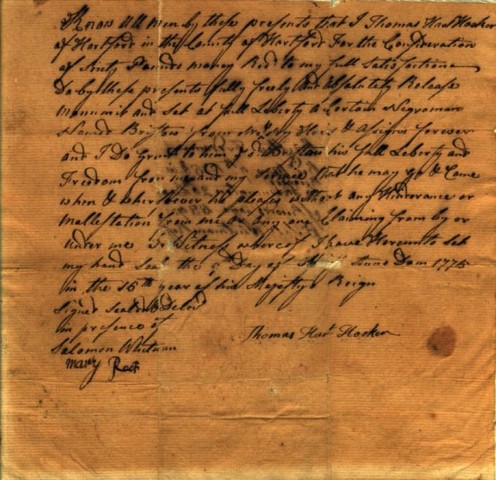 Know All men by these presents that I Thomas Hart Hooker
of Hartford in the County of Hartford For the Consideration
of Sixty Pounds money Recd to my full Satisfactione
Do by these presents fully freely and absolutely Release
Manumit and Set at full Liberty a Certain Negroman
Named Bristow from me my Heirs & Asigns forever
and I Do Grant to him Sd Bristow his full Liberty and
Freedom from me and my Service that he may go & Come
when & wherever he pleases without any Hinderance or
Mallestation from me or any one Claiming from by or
under me In Witness whereof I have Hereunto Set
my hand Seal the Day of Anno Dom 1775
in the 16th year of his Majesty Reign
Signd Seald & Delivd
in presence of
Thomas Hart Hooker
Salomon Whitman
Mary Root